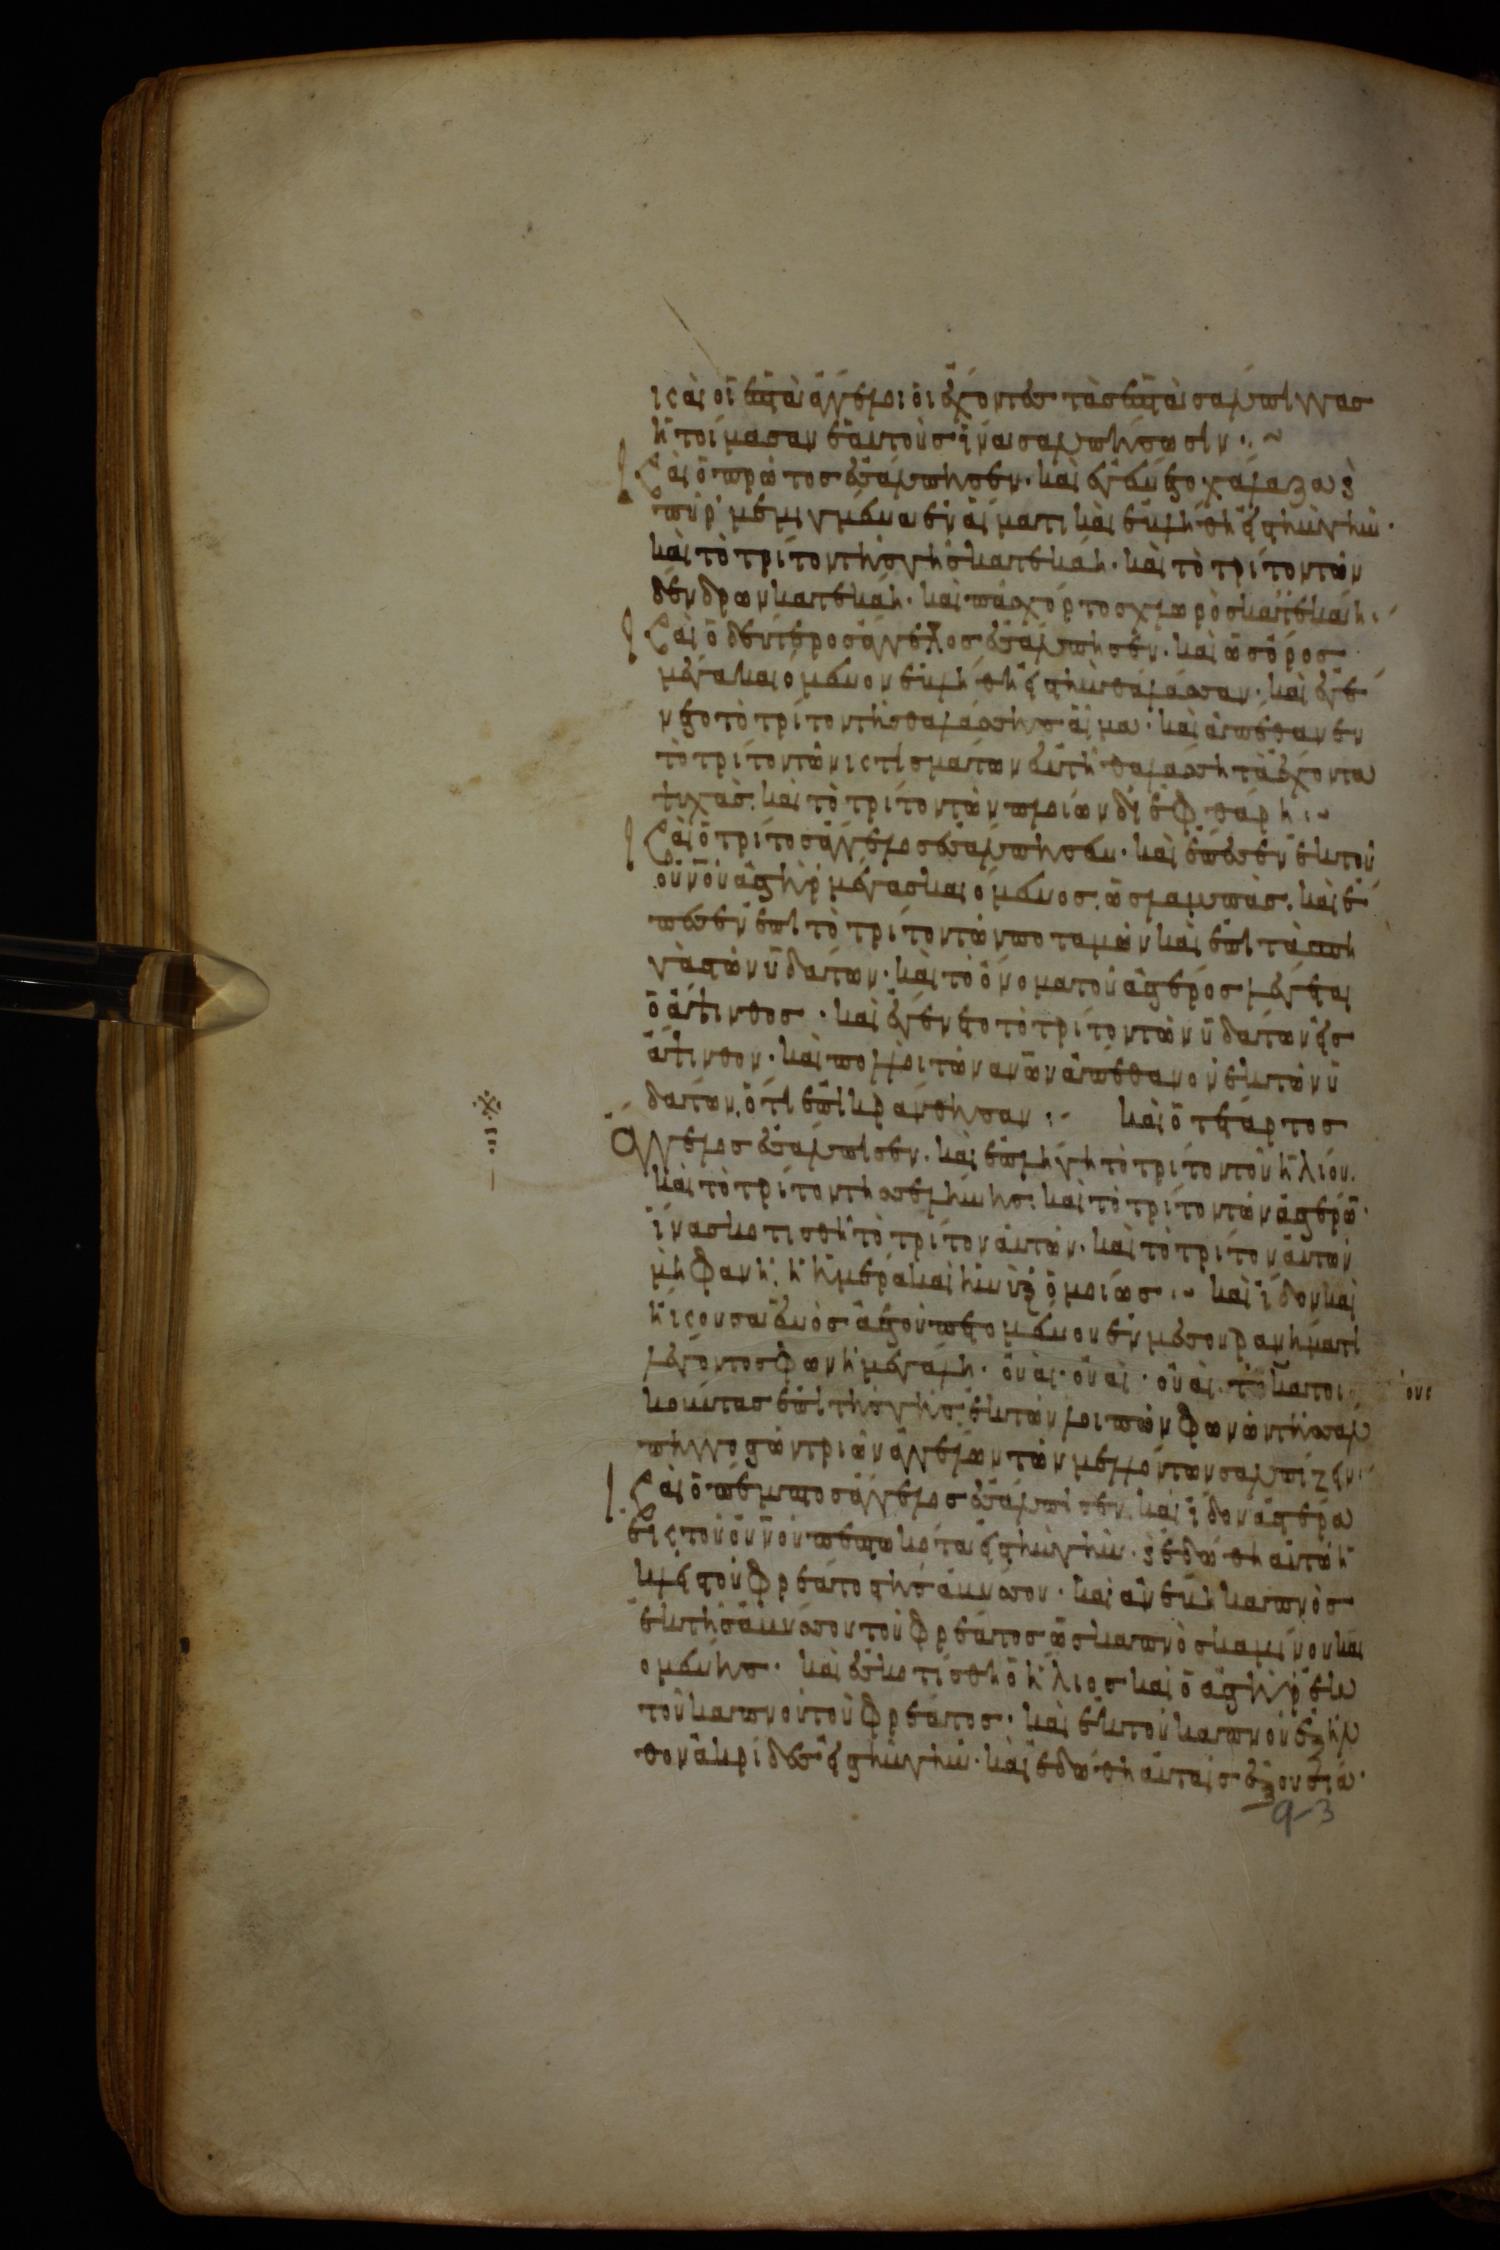 κ(αὶ) οἱ ἑπτὰ ἄγγελοι οἱ ἔχοντες τὰς ἑπτὰ σάλπιγγας
ἡτοίμασαν ἑαυτοὺς ἵνα σαλπήσωσιν·~
Καὶ ὁ πρῶτος ἐσάλπησεν· καὶ ἐγένετο χάλαζα ϗ
πῦρ μεμιγμένα ἐν αἵματι καὶ ἐβλήθη εἰς τὴν γῆν·
καὶ τὸ τρίτον τῆς γῆς κατεκάη· καὶ τὸ τρίτον τῶν
δένδρων κατεκάη· καὶ πᾶς χόρτος χλωρὸς κατεκάη·
Καὶ ὁ δεύτερος ἄγγελος ἐσάλπησεν· καὶ ὡς ὄρος
μέγα καιόμενον ἐβλήθη εἰς τὴν θάλασσαν· καὶ ἐγέ
νετο τὸ τρίτον τῆς θαλάσσης αἷμα· καὶ ἀπέθανεν
τὸ τρίτον τῶν κτισμάτων ἐν τῇ θαλάσσῃ τὰ ἔχοντα
ψυχάς· καὶ τὸ τρίτον τῶν πλοίων διεφθάρη·~
Καὶ ὁ τρίτος ἄγγελος ἐσάλπησεν· καὶ ἔπεσεν ἐκ τοῦ
οὐνοῦ ἀστὴρ μέγας καιόμενος ὡς λαμπάς· καὶ ἔ
πεσεν ἐπὶ τὸ τρίτον τῶν ποταμῶν καὶ ἐπὶ τὰς πη
γὰς τῶν ὑδάτων· καὶ τὸ ὄνομα τοῦ ἀστέρος λέγεται
ὁ ἄψινθος· καὶ ἐγένετο τὸ τρίτον τῶν ὑδάτων εἰς
ἄψινθον· καὶ πολλοὶ τῶν ανων ἀπέθανον ἐκ τῶν ὑ
δάτων, ὅτι ἐπικράνθησαν·~ καὶ ὁ τέταρτος
ἄγγελος ἐσάλπισεν· καὶ ἐπλήγη τὸ τρίτον τοῦ ἡλίου·
καὶ τὸ τρίτον τῆς σελήνης· καὶ τὸ τρίτον τῶν ἀστέρω
ἵνα σκοτισθῇ τὸ τρίτον αὐτῶν· καὶ τὸ τρίτον αὐτῶν
μὴ φανῇ ἡ ἡμέρα καὶ ἡ νὺξ ὁμοίως·~ καὶ ἴδον καὶ
ἤκουσα ἑνὸς ἀετοῦ πετομένου ἐν μεσουρανήματι
λέγοντος φωνῇ μεγάλῃ· οὐαὶ· οὐαὶ· οὐαὶ· τ κατοι ους
κοῦντας ἐπὶ τῆς γῆς ἐκ τῶν λοιπῶν φωνῶν τῆς σάλ
πηγγος τῶν τριῶν ἀγγέλων τῶν μελλόντων σαλπίζειν·
Καὶ ὁ πέμπτος ἄγγελος ἐσάλπισεν· καὶ ἴδον ἀστέρα
ἐκ τοῦ οὐνοῦ πεπτωκότα εἰς τὴν γῆν· ϗ ἐδώθη αὐτῷ ἡ
κλεὶς τοῦ φρέατο τῆς ἀβύσσου· καὶ ἀνέβη καπνὸς
ἐκ τῆς ἀβύσσου τοῦ φρέατος ὡς καπνὸς καμίνου και
ομένης· καὶ ἐσκοτίσθη ὁ ἥλιος καὶ ὁ ἀὴρ ἐκ
τοῦ καπνοῦ τοῦ φρέατος· καὶ ἐκ τοῦ καπνοῦ ἐξῆλ
θον ἀκρίδες εἰς τὴν γῆν· καὶ ἐδώθη αὐταῖς ἐξουσία·
93